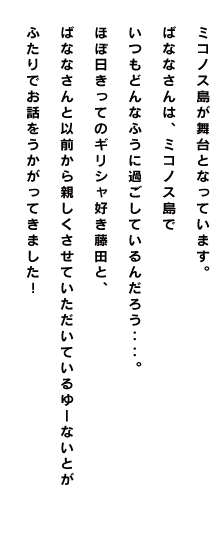 ミコノス島が舞台となっています。
ばななさんは、ミコノス島で
いつもどんなふうに過ごしているんだろう‥‥。
ほぼ日きってのギリシャ好き藤田と、
ばななさんと以前から親しくさせていただいているゆーないとが
ふたりでお話をうかがってきました！